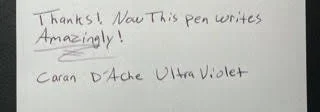 Thanks! Now This pen writes
Amazingly!
Caran D'Ache Ultra Violet